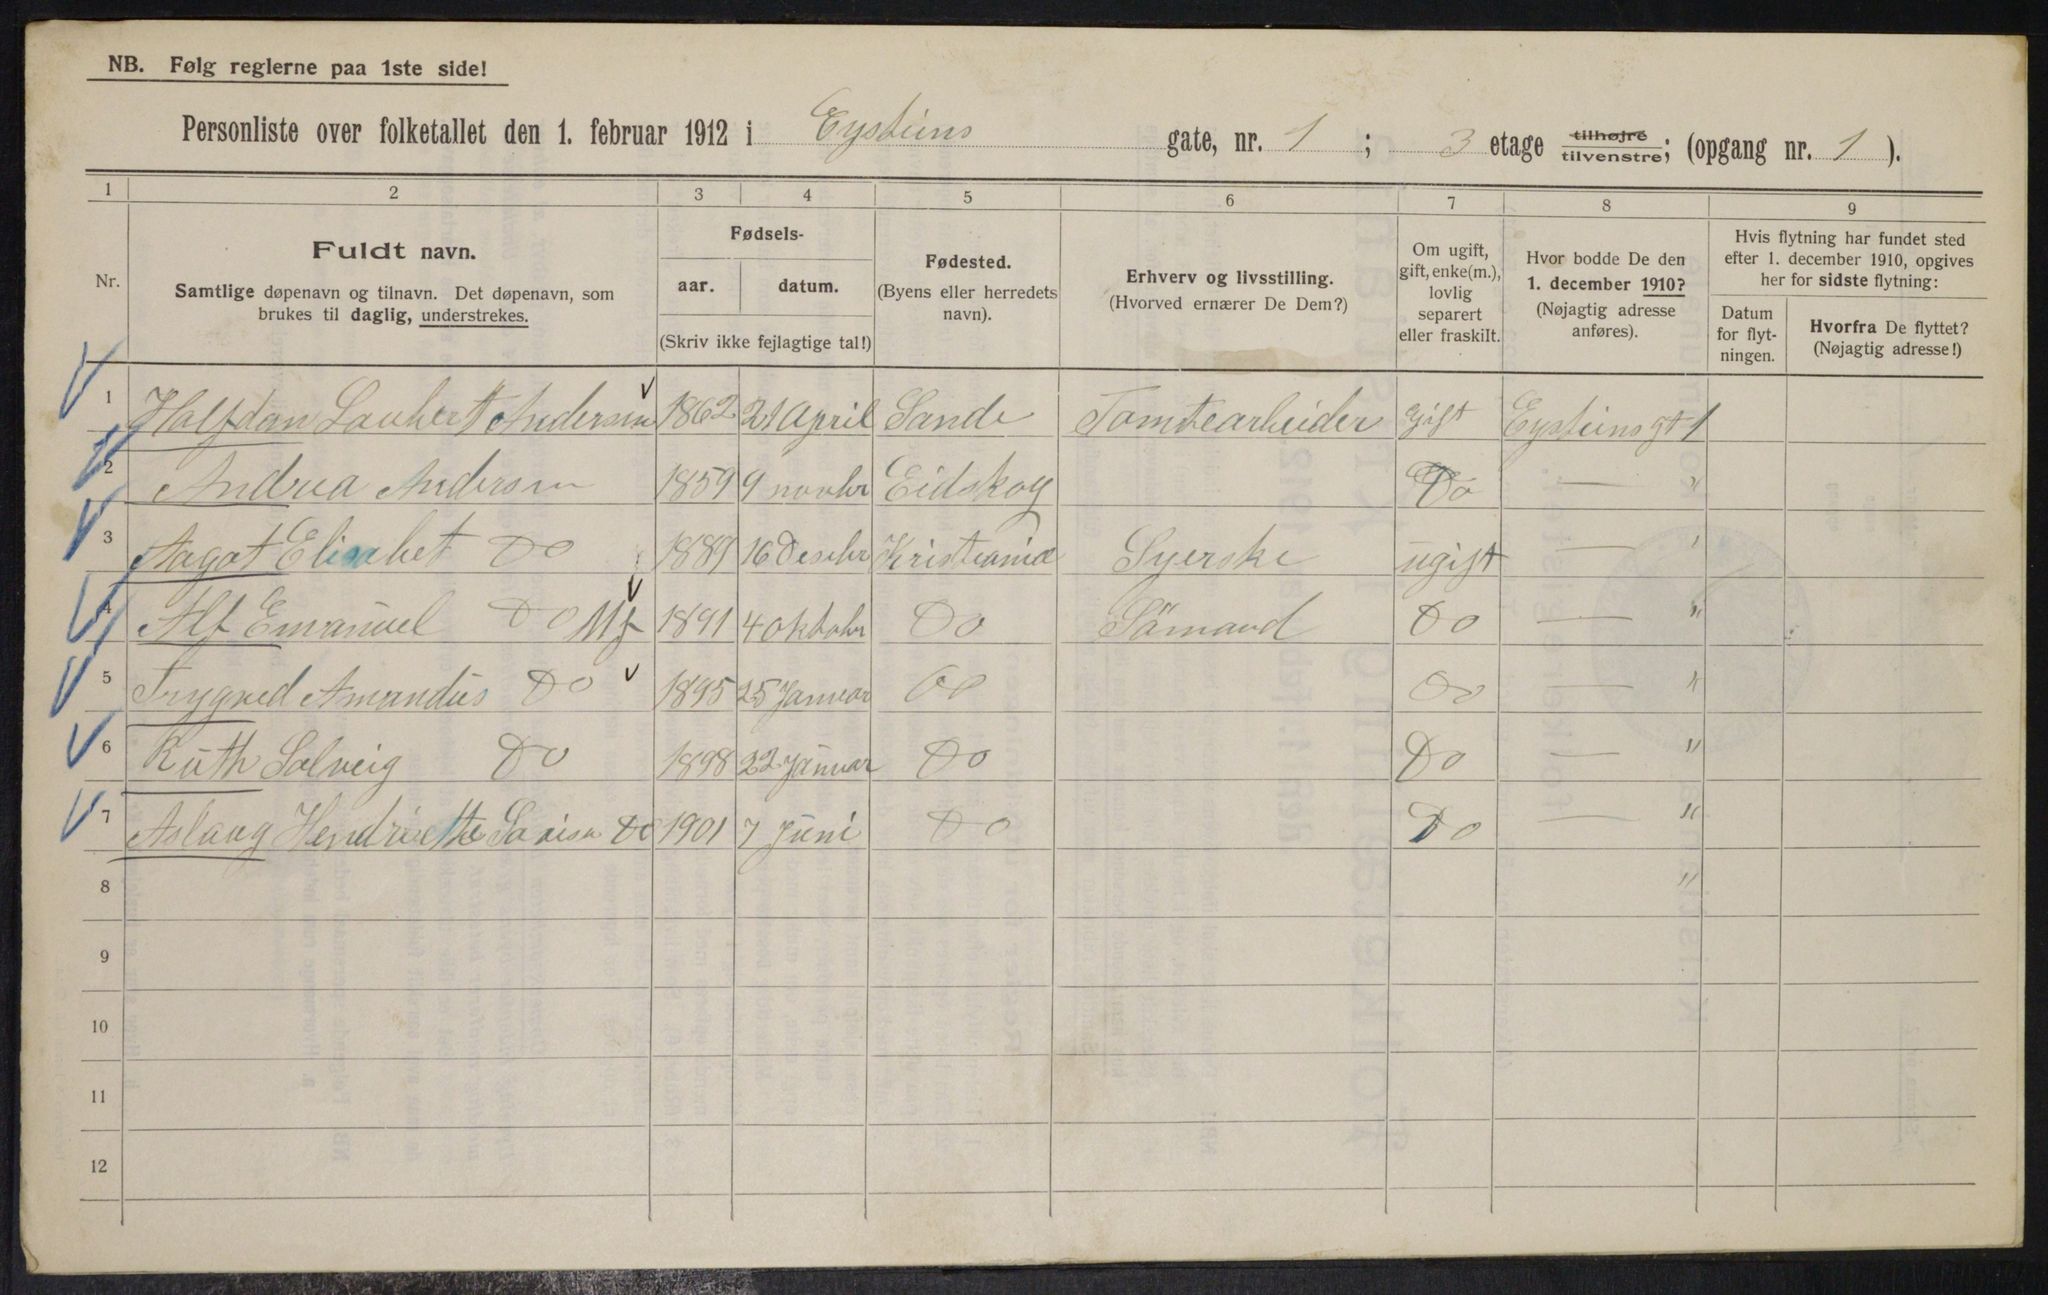 NB. Følg reglerne paa 1ste side!
Personliste over folketallet den 1. februar 1912 i Eysteins gate, nr. 1 ; 3 etage tilhøjre tilvenstre; (opgang nr. 1 ).
1 2 3 4 5 6 7 8 9
Nr. Fuldt navn. Samtlige døpenavn og tilnavn. Det døpenavn, som brukes til daglig, understrekes.
Fødsels- aar. datum. (Skriv ikke fejlagtige tal!)
Fødested. (Byens eller herredets navn).
Erhverv og livsstilling. (Hvorved ernærer De Dem?)
Om ugift, gift, enke(m.), lovlig separert eller fraskilt.
Hvor bodde De den 1. december 1910? (Nøjagtig adresse anføres).
Hvis flytning har fundet sted efter 1. december 1910, opgives her for sidste flytning:
Datum for flytningen. Hvorfra De flyttet? (Nøjagtig adresse!)
1 Halfdan Andersen 1862 21 April Sande Tomtearbeider Gift Eysteins gt 1
2 Andrea Andersen 1859 9 novbr Eidskog Do — "
3 Aagot Elisabet Do 1889 16 Desebr Kristiania Syerske ugift — "
4 Alf Emanuel Do 1891 4 oktobr Do Sömand Do — "
5 Trygved Amandus Do 1895 25 Januar Do Do — "
6 Ruth Solveig Do 1898 22 Januar Do Do — "
7 Aslaug Hendriette Lovise Do 1901 7 Juni Do Do — "
8 "
9
10
11
12